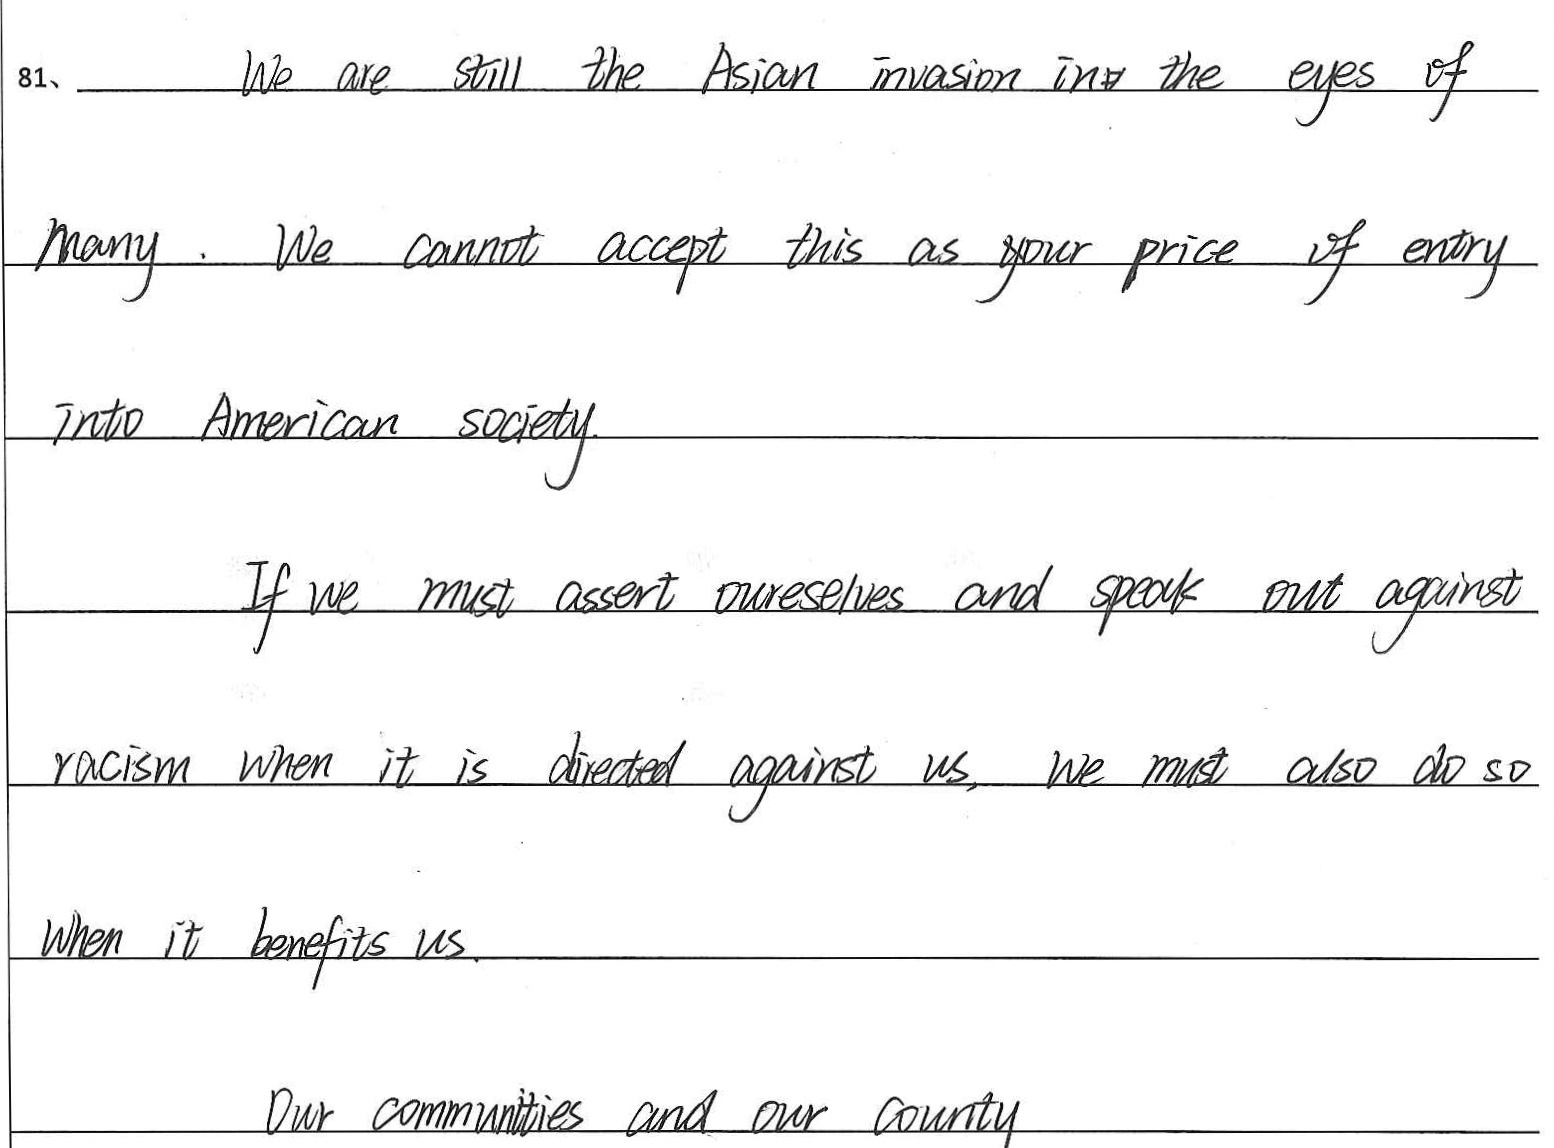 81、 We are still the Asian invasion in the eyes of
many. We cannot accept this as your price of entry
into American society.
If we must assert oureselves and speak out against
racism when it is directed against us, we must also do so
when it benefits us.
Our communities and our county